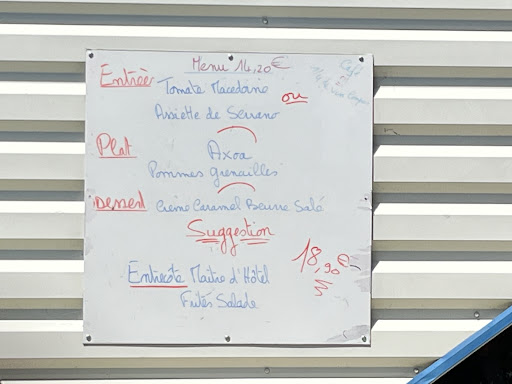 Menu 14,20€
Café
Entrées Tomate Macedoine
ou
Assiette de Serrano
Plat Axoa
Pommes grenailles
Dessert Crème Caramel Beurre Salé
Suggestion
18,90€
Entrecôte Maitre d'Hôtel
Frites Salade